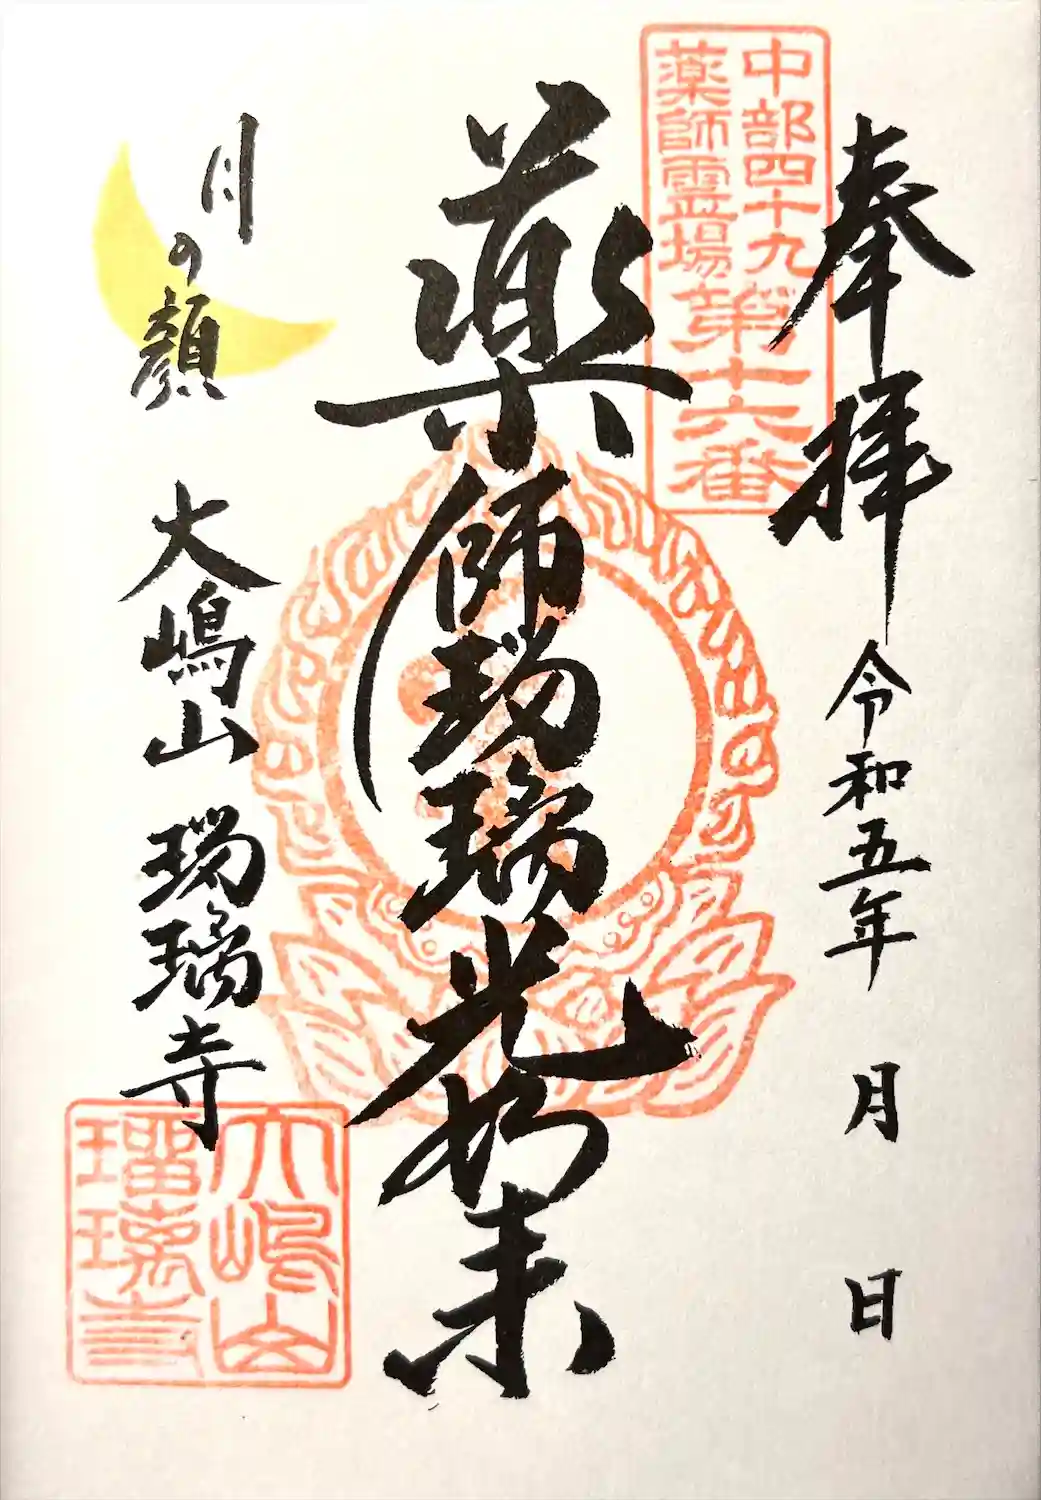 奉拝 令和五年 月 日
中部四十九
薬師霊場
第十六番
薬師瑠璃光如来
月の顔
大嶋山 瑠璃寺
大嶋山
瑠璃寺